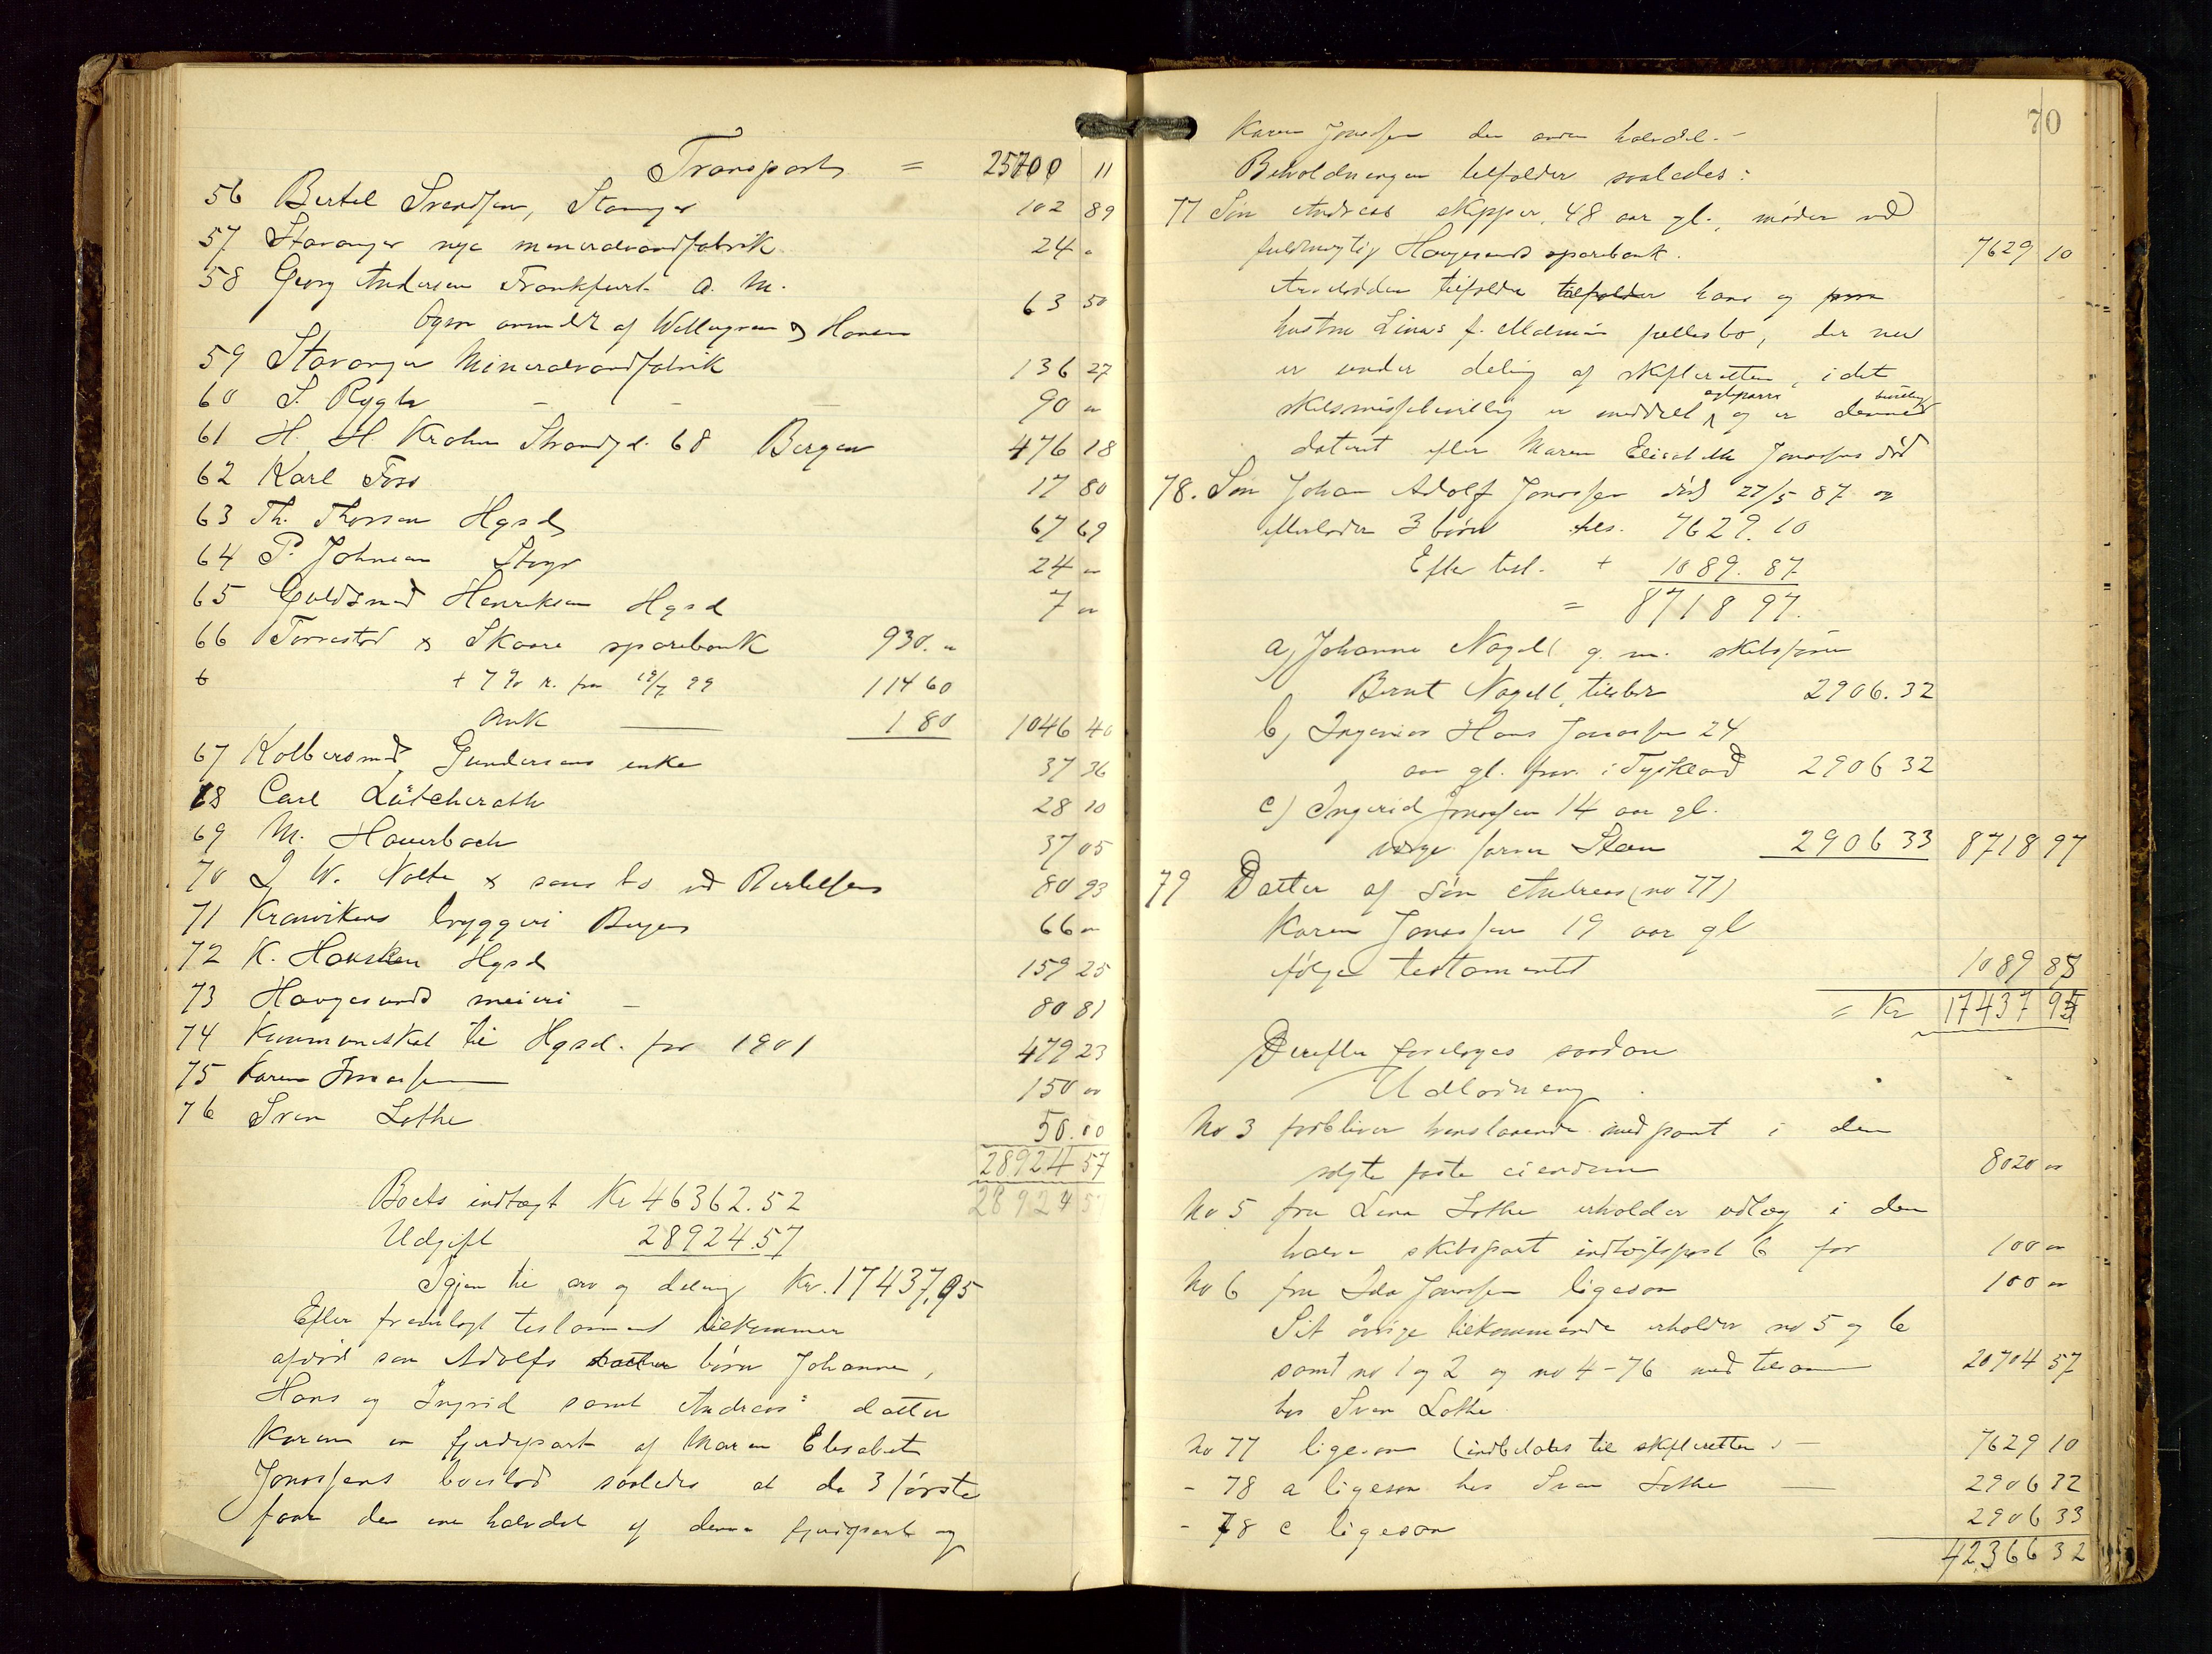 Transport = 25700 11
56 Bertel Svendsen, Stavanger 102 89
57 Stavanger nye mineralvandfabrik 24 "
58 Georg Andersen Frankfurt a. M.
63 50
59 Stavanger Mineralvandfabrik 136 27
60 S. Rygh — — — 90 "
61 H. H. Krohn Strandgd. 68 Bergen 476 18
62 Karl Foss 17 80
63 Th. Thorsen Hgsd 67 69
64 P. Johnsen Stvgr 24 "
65 Guldsmed Henriksen Hgsd 7 "
66 Torvestad & Skaare sparebank 930. "
+ 7 % r. fra 19/7 99 114 60
Ank 1 80 1046 40
67 Kobbersmed Gundersens enke 37 36
68 Carl Lütcherath 28 10
69 M. Hauerbach 37 05
70 J. W. Nolte & søns bo ved Bertelsen 80 93
71 Kronvikens bryggeri Bergen 66 "
72 K. Hausken Hgsd 159 25
73 Haugesunds meieri — 80 81
74 Kommuneskat til Hgsd. for 1901 479 23
75 Karen Jonassen 150 "
76 Sven Lothe 50.00
28924 57
28924 5
Boets indtægt Kr 46362.52
Udgift 28924.57
Igjen til arv og deling Kr. 17437,95
Efter fremlagt testament tilkommer
afdød søn Adolfs datter børn Johanne,
Hans og Ingrid samt Andreas' datter
Karen en fjerdepart af Maren Elisabet
Jonassens boeslod saaledes at de 3 første
faar den ene halvdel af denne fjerdepart og
70
Karen Jonassen den anden halvdel. —
Beholdningen tilfalder saaledes:
77 Søn Andreas skipper, 48 aar gl., møder ved
fuldmægtig Haugesunds sparebank. 7629 10
Arvelodden tilfalder tilfalder hans og
hustru Lina's f. Malmin fællesbo, der nu
er under deling af skifteretten, idet
skilsmissebevilling er meddelt og er denne
dateret efter Maren Elisabeth Jonassens død
78. Søn Johan Adolf Jonassen død 27/5 87 og
efterlader 3 børn 7629.10
Efter test. + 1089.87
= 8718 97.
a) Johanne Nagell g. m. skibsfører
Bernt Nagell, 2906.32
b) Ingeniør Hans Jonassen 24
aar gl. frav. i Tyskland 2906 32
c) Ingerid Jonassen 14 aar gl.
værge 2906 33 8718 97
79 Datter af søn Andreas (no 77)
Karen Jonassen 19 aar gl
ifølge testamentet 1089 88
= Kr 17437 95
Derefter foretoges saadan
Udlodning.
No 3 forbliver henstaaende med pant i den
solgte faste eiendom 8020 "
No 5 fru Lina Lothe erholder udlæg i den
halve skibspart indtægtspost 6 for 100 "
No 6 fru Ida Jonassen ligesaa 100 "
Sit øvrige tilkommende erholder no 5 og 6
samt no 1 og 2 og no 4-76 ved 20704 57
hos Sven Lothe
No 77 ligesaa (indbetales til skifteretten) — 7629 10
- 78 a ligesaa hos Sven Lothe — 2906 32
- 78 c ligesaa 2906 33
42366 32